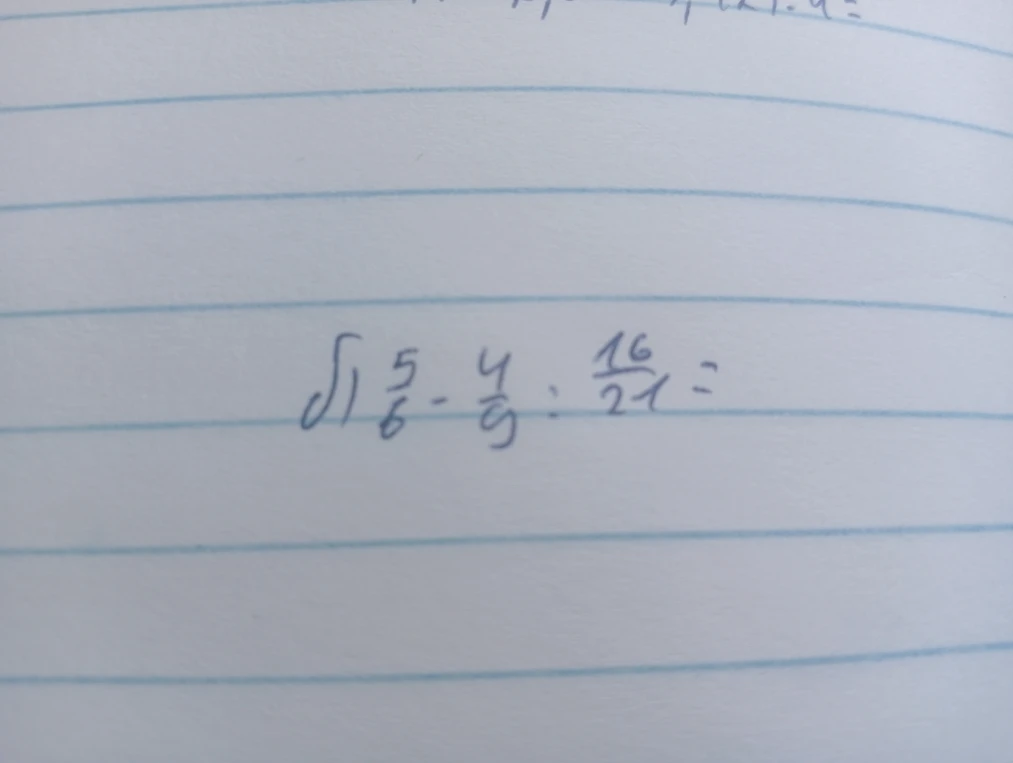 б) 5/6 - 4/9 : 16/21 =